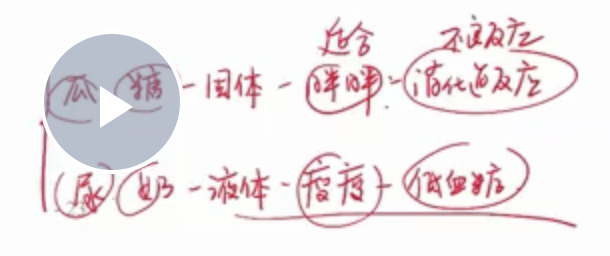 适合 不良反应
瓜 糖 - 固体 - 胖胖 - 消化道反应
尿 奶 - 液体 - 瘦瘦 - 低血糖